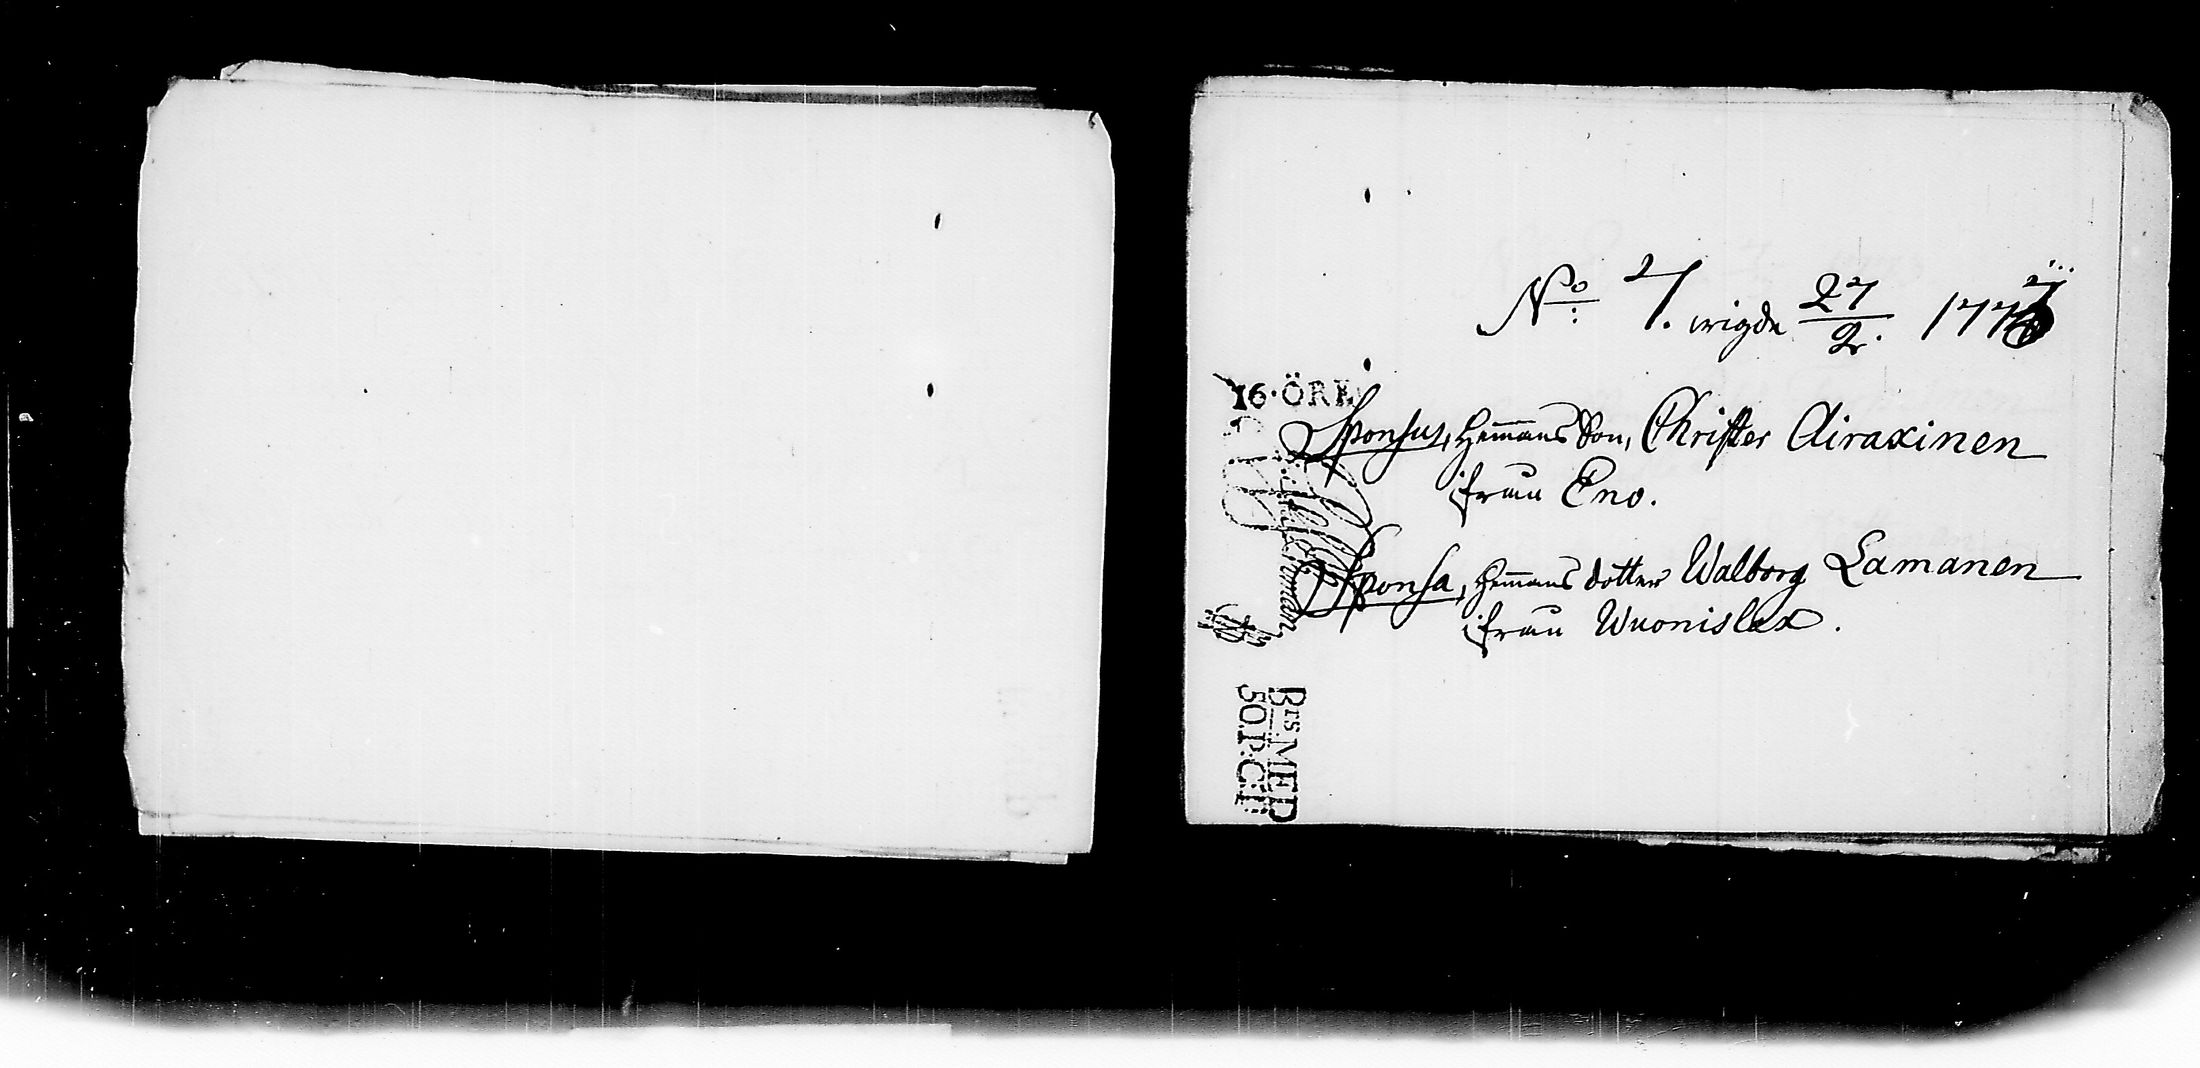 No: 7. wigde 27/2. 1777
16·ÖRE
Sponsus, Hemmans Son, Christer Airaxinen
ifrån Eno.
Sponsa, Hemmans dotter Walborg Lamanen
ifrån Wuonislax.
Brs MED
50.P:C:T